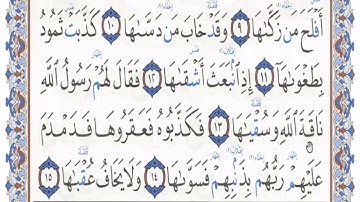 أَفْلَحَ مَن زَكَّىٰهَا ٩ وَقَدْ خَابَ مَن دَسَّىٰهَا ١٠ كَذَّبَتْ ثَمُودُ
بِطَغْوَىٰهَا ١١ إِذِ ٱنۢبَعَثَ أَشْقَىٰهَا ١٢ فَقَالَ لَهُمْ رَسُولُ ٱللَّهِ
نَاقَةَ ٱللَّهِ وَسُقْيَٰهَا ١٣ فَكَذَّبُوهُ فَعَقَرُوهَا فَدَمْدَمَ
عَلَيْهِمْ رَبُّهُم بِذَنۢبِهِمْ فَسَوَّىٰهَا ١٤ وَلَا يَخَافُ عُقْبَٰهَا ١٥